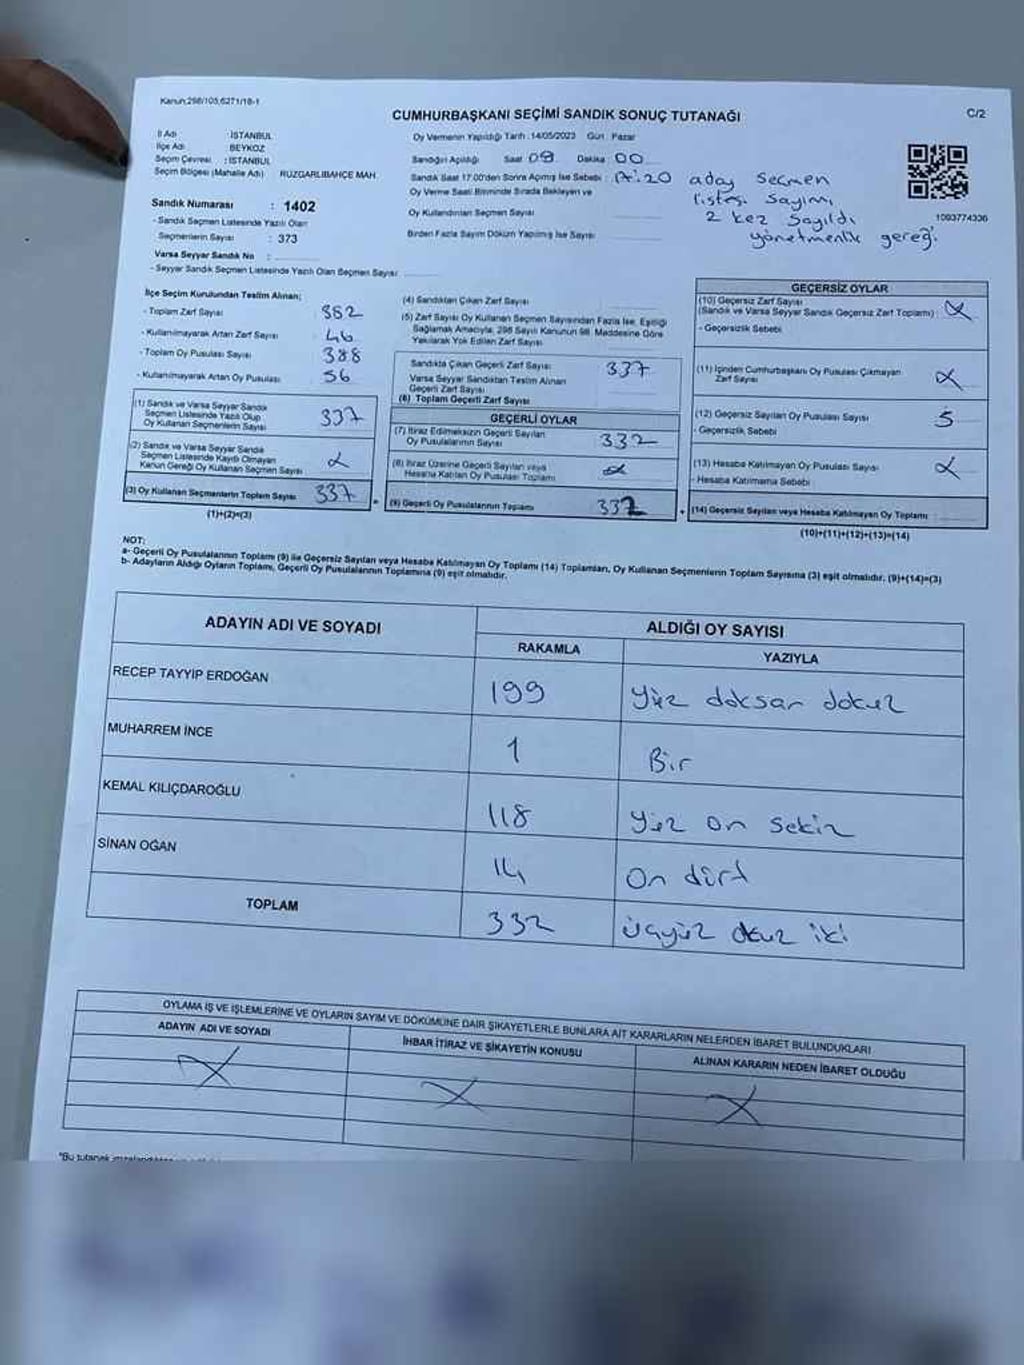 Kanun:298/105,6271/18-1
CUMHURBAŞKANI SEÇİMİ SANDIK SONUÇ TUTANAĞI
C/2
İl Adı : İSTANBUL
İlçe Adı : BEYKOZ
Seçim Çevresi : İSTANBUL
Seçim Bölgesi (Mahalle Adı) RÜZGARLIBAHÇE MAH.
Sandık Numarası : 1402
- Sandık Seçmen Listesinde Yazılı Olan
Seçmenlerin Sayısı : 373
Varsa Seyyar Sandık No :
- Seyyar Sandık Seçmen Listesinde Yazılı Olan Seçmen Sayısı
Oy Vermenin Yapıldığı Tarih : 14/05/2023 Gün : Pazar
Sandığın Açıldığı Saat 08 Dakika 00
Sandık Saat 17:00'den Sonra Açılmış İse Sebebi : 17:20 aday seçmen
listesi sayımı
2 kez sayıldı
yönetmenlik gereği.
Oy Verme Saati Bitiminde Sırada Bekleyen ve
Oy Kullandırılan Seçmen Sayısı
Birden Fazla Sayım Döküm Yapılmış İse Sayısı
1093774336
İlçe Seçim Kurulundan Teslim Alınan;
- Toplam Zarf Sayısı 382
- Kullanılmayarak Artan Zarf Sayısı 46
- Toplam Oy Pusulası Sayısı 388
- Kullanılmayarak Artan Oy Pusulası 56
(1) Sandık ve Varsa Seyyar Sandık
Seçmen Listesinde Yazılı Olup
Oy Kullanan Seçmenlerin Sayısı 337
(2) Sandık ve Varsa Seyyar Sandık
Seçmen Listesinde Kayıtlı Olmayan
Kanun Gereği Oy Kullanan Seçmen Sayısı
(3) Oy Kullanan Seçmenlerin Toplam Sayısı 337
(1)+(2)=(3)
(4) Sandıktan Çıkan Zarf Sayısı
(5) Zarf Sayısı Oy Kullanan Seçmen Sayısından Fazla İse, Eşitliği
Sağlamak Amacıyla, 298 Sayılı Kanunun 98. Maddesine Göre
Yakılarak Yok Edilen Zarf Sayısı
Sandıkta Çıkan Geçerli Zarf Sayısı 337
Varsa Seyyar Sandıktan Teslim Alınan
Geçerli Zarf Sayısı
(6) Toplam Geçerli Zarf Sayısı
GEÇERLİ OYLAR
(7) İtiraz Edilmeksizin Geçerli Sayılan
Oy Pusulalarının Sayısı 332
(8) İtiraz Üzerine Geçerli Sayılan veya
Hesaba Katılan Oy Pusulası Toplamı
(9) Geçerli Oy Pusulalarının Toplamı 332
GEÇERSİZ OYLAR
(10) Geçersiz Zarf Sayısı
(Sandık ve Varsa Seyyar Sandık Geçersiz Zarf Toplamı) :
- Geçersizlik Sebebi
(11) İçinden Cumhurbaşkanı Oy Pusulası Çıkmayan
Zarf Sayısı
(12) Geçersiz Sayılan Oy Pusulası Sayısı 5
- Geçersizlik Sebebi
(13) Hesaba Katılmayan Oy Pusulası Sayısı
- Hesaba Katılmama Sebebi
(14) Geçersiz Sayılan veya Hesaba Katılmayan Oy Toplamı
(10)+(11)+(12)+(13)=(14)
NOT:
a- Geçerli Oy Pusulalarının Toplamı (9) ile Geçersiz Sayılan veya Hesaba Katılmayan Oy Toplamı (14) Toplamları, Oy Kullanan Seçmenlerin Toplam Sayısına (3) eşit olmalıdır. (9)+(14)=(3)
b- Adayların Aldığı Oyların Toplamı, Geçerli Oy Pusulalarının Toplamına (9) eşit olmalıdır.
ADAYIN ADI VE SOYADI ALDIĞI OY SAYISI
RAKAMLA YAZIYLA
RECEP TAYYİP ERDOĞAN 199 Yüz doksan dokuz
MUHARREM İNCE 1 Bir
KEMAL KILIÇDAROĞLU 118 Yüz on sekiz
SİNAN OĞAN 14 On dört
TOPLAM 332 üçyüz otuz iki
OYLAMA İŞ VE İŞLEMLERİNE VE OYLARIN SAYIM VE DÖKÜMÜNE DAİR ŞİKAYETLERLE BUNLARA AİT KARARLARIN NELERDEN İBARET BULUNDUKLARI
ADAYIN ADI VE SOYADI İHBAR İTİRAZ VE ŞİKAYETİN KONUSU ALINAN KARARIN NEDEN İBARET OLDUĞU
*Bu tutanak